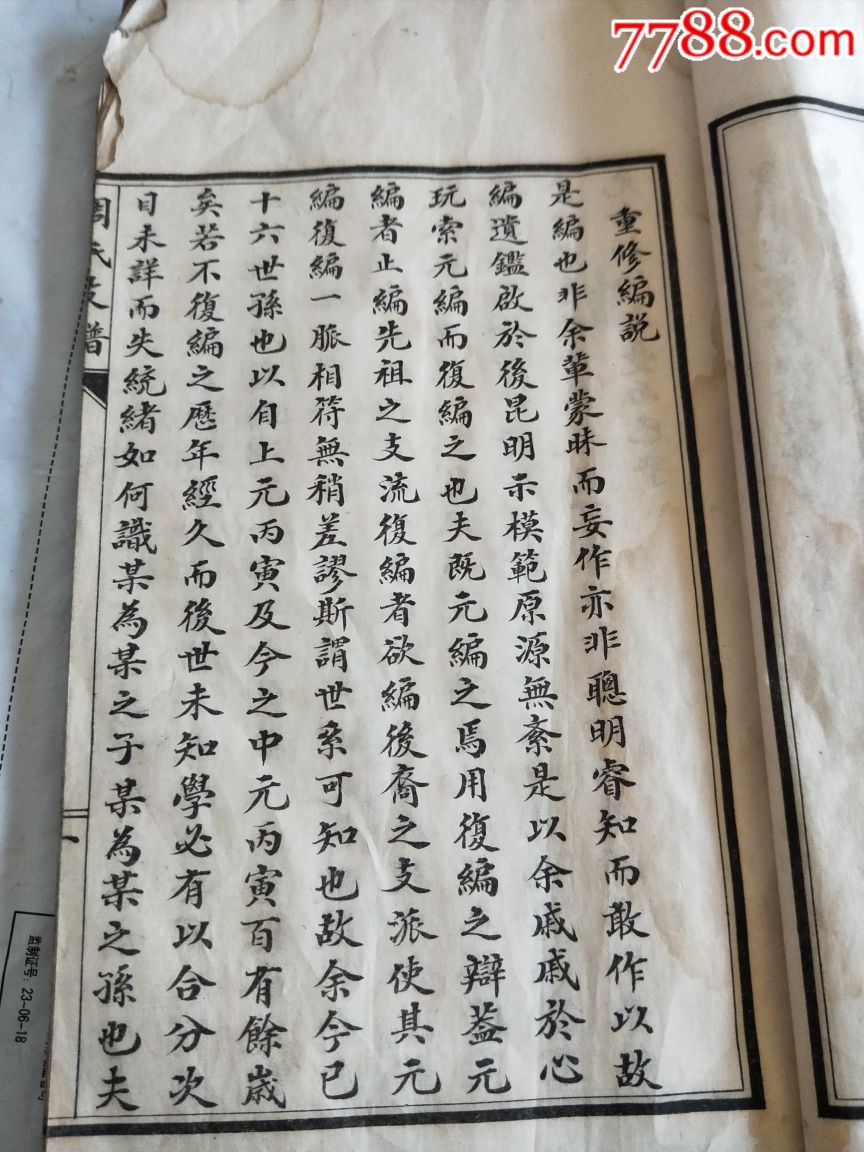 7788.com
重修編説
是編也非余輩蒙昧而妄作亦非聰明睿知而敢作以故
編遺鑑啟於後昆明示模範原源無紊是以余戚戚於心
玩索元編而復編之也夫既元編之焉用復編之辯蓋元
編者止編先祖之支流復編者欲編後裔之支派使其元
編復編一脈相符無稍差謬斯謂世系可知也故余今已
十六世孫也以自上元丙寅及今之中元丙寅百有餘歲
矣若不復編之歷年經久而後世未知學必有以合分次
目未詳而失統緒如何識某為某之子某為某之孫也夫
周氏支譜
一
监制证号: 23-06-18